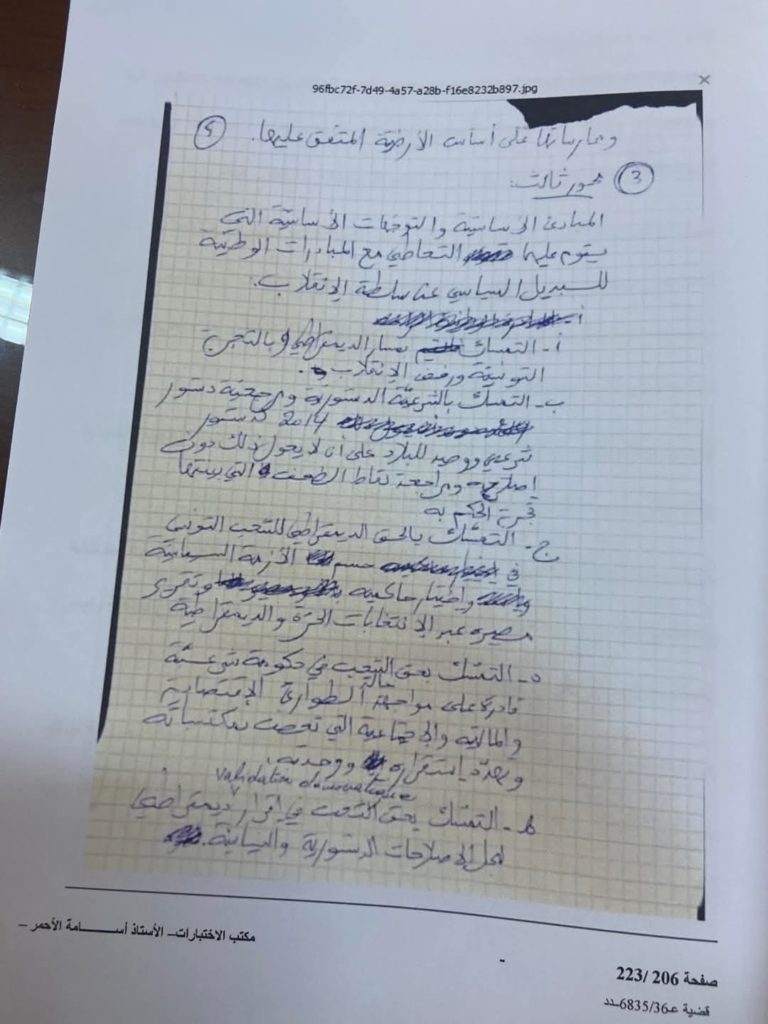 96fbc72f-7d49-4a57-a28b-f16e8232b897.jpg
وممارساتها على أساس الأرضية المتفق عليها.
3 محور ثالث:
المبادئ الأساسية والتوجهات الأساسية التي
يقوم عليها التعاطي مع المبادرات الوطنية
للبديل السياسي عن سلطة الإنقلاب.
أ - التمسك بمسار الديمقراطي وبالتجربة
التونسية ورفض الإنقلاب.
ب - التمسك بالشرعية الدستورية ومرجعية دستور
2014 كدستور
شرعي ووحيد للبلاد على أن لا يحول ذلك دون
إصلاح ومراجعة نقاط الضعف التي بينتها
تجربة الحكم به
ج - التمسك بالحق الديمقراطي للشعب التونسي
في حسم الأزمة السياسية
واختيار حاكميه وتقرير
مصيره عبر الإنتخابات الحرة والديمقراطية
د - التمسك بحق الشعب في حكومة شرعية
قادرة على مواجهة حالة الطوارئ الإقتصادية
والمالية والإجتماعية التي تعصف بمكتسباته
وتهدد إستقراره ووحدته.
validation démocratique
ه - التمسك بحق الشعب في إقرار ديمقراطي
لكل الإصلاحات الدستورية والسياسية.
مكتب الاختبارات – الأستاذ أسامة الأحمر –
صفحة 206 /223
قضية عـ6835/36ـدد